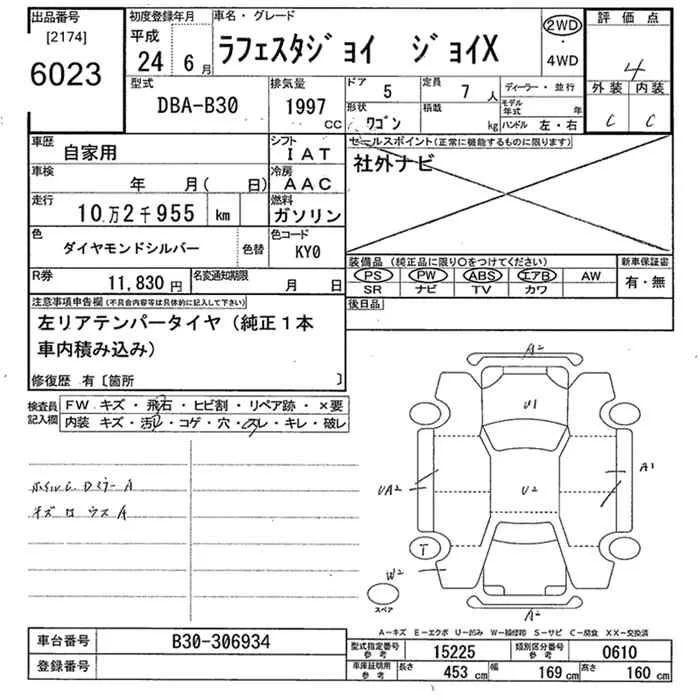 出品番号
[2174]
6023
初度登録年月
平成
24 6月
車名・グレード
ラフェスタジョイ ジョイX
2WD
・
4WD
評価点
4
外装 内装
C C
型式
DBA-B30
排気量
1997
CC
ドア
5
定員
7人
ディーラー・並行
形状
ワゴン
積載
kg
モデル年式
年
ハンドル 左・右
車歴
自家用
シフト
IAT
車検
年 月( 日)
冷房
AAC
走行
10万2千955 km
燃料
ガソリン
色
ダイヤモンドシルバー
色替
色コード
KY0
R券
11,830円
名変通知期限
月 日
セールスポイント(正常に機能するものに限ります)
社外ナビ
装備品(純正品に限り○をつけてください)
PS PW ABS エアB AW
SR ナビ TV カワ
新車保証書
有・無
後日品
注意事項申告欄(不具合内容等は具体的に記入して下さい)
左リアテンパータイヤ(純正1本
車内積み込み)
修復歴 有〔箇所 〕
検査員記入欄
FW キズ・飛石・ヒビ割・リペア跡・×要
内装 キズ・汚レ・コゲ・穴・スレ・キレ・破レ
ホイルC Dミラー A
キズ ウス A
A2
U1
UA2
A1
U2
T
W2
スペア
A2
A−キズ E−エクボ U−凹み W−補修跡 S−サビ C−腐食 XX−交換済
車台番号
B30-306934
登録番号
型式指定番号
参考
15225
類別区分番号
参考
0610
車庫証明用
参考
長さ
453 cm
幅
169 cm
高さ
160 cm